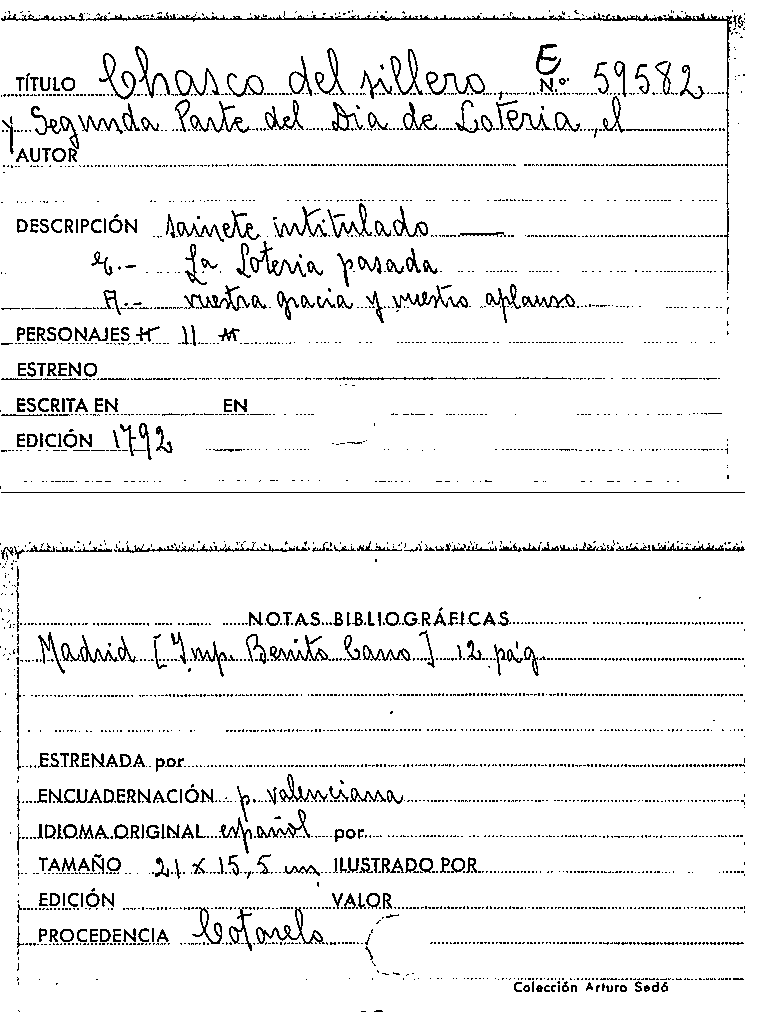 TÍTULO Chasco del sillero, E N.º 59582
y Segunda Parte del Dia de Loteria, el
AUTOR
DESCRIPCIÓN sainete intitulado
E.- La Loteria pasada
A.- vuestra gracia y vuestro aplauso
PERSONAJES H 11 M
ESTRENO
ESCRITA EN EN
EDICIÓN 1792
NOTAS BIBLIOGRÁFICAS
Madrid [Imp. Benito Cano] 12 pág.
ESTRENADA por
ENCUADERNACIÓN p. valenciana
IDIOMA ORIGINAL español por
TAMAÑO 21 x 15,5 cm ILUSTRADO POR
EDICIÓN VALOR
PROCEDENCIA Cotarelo
Colección Arturo Sedó